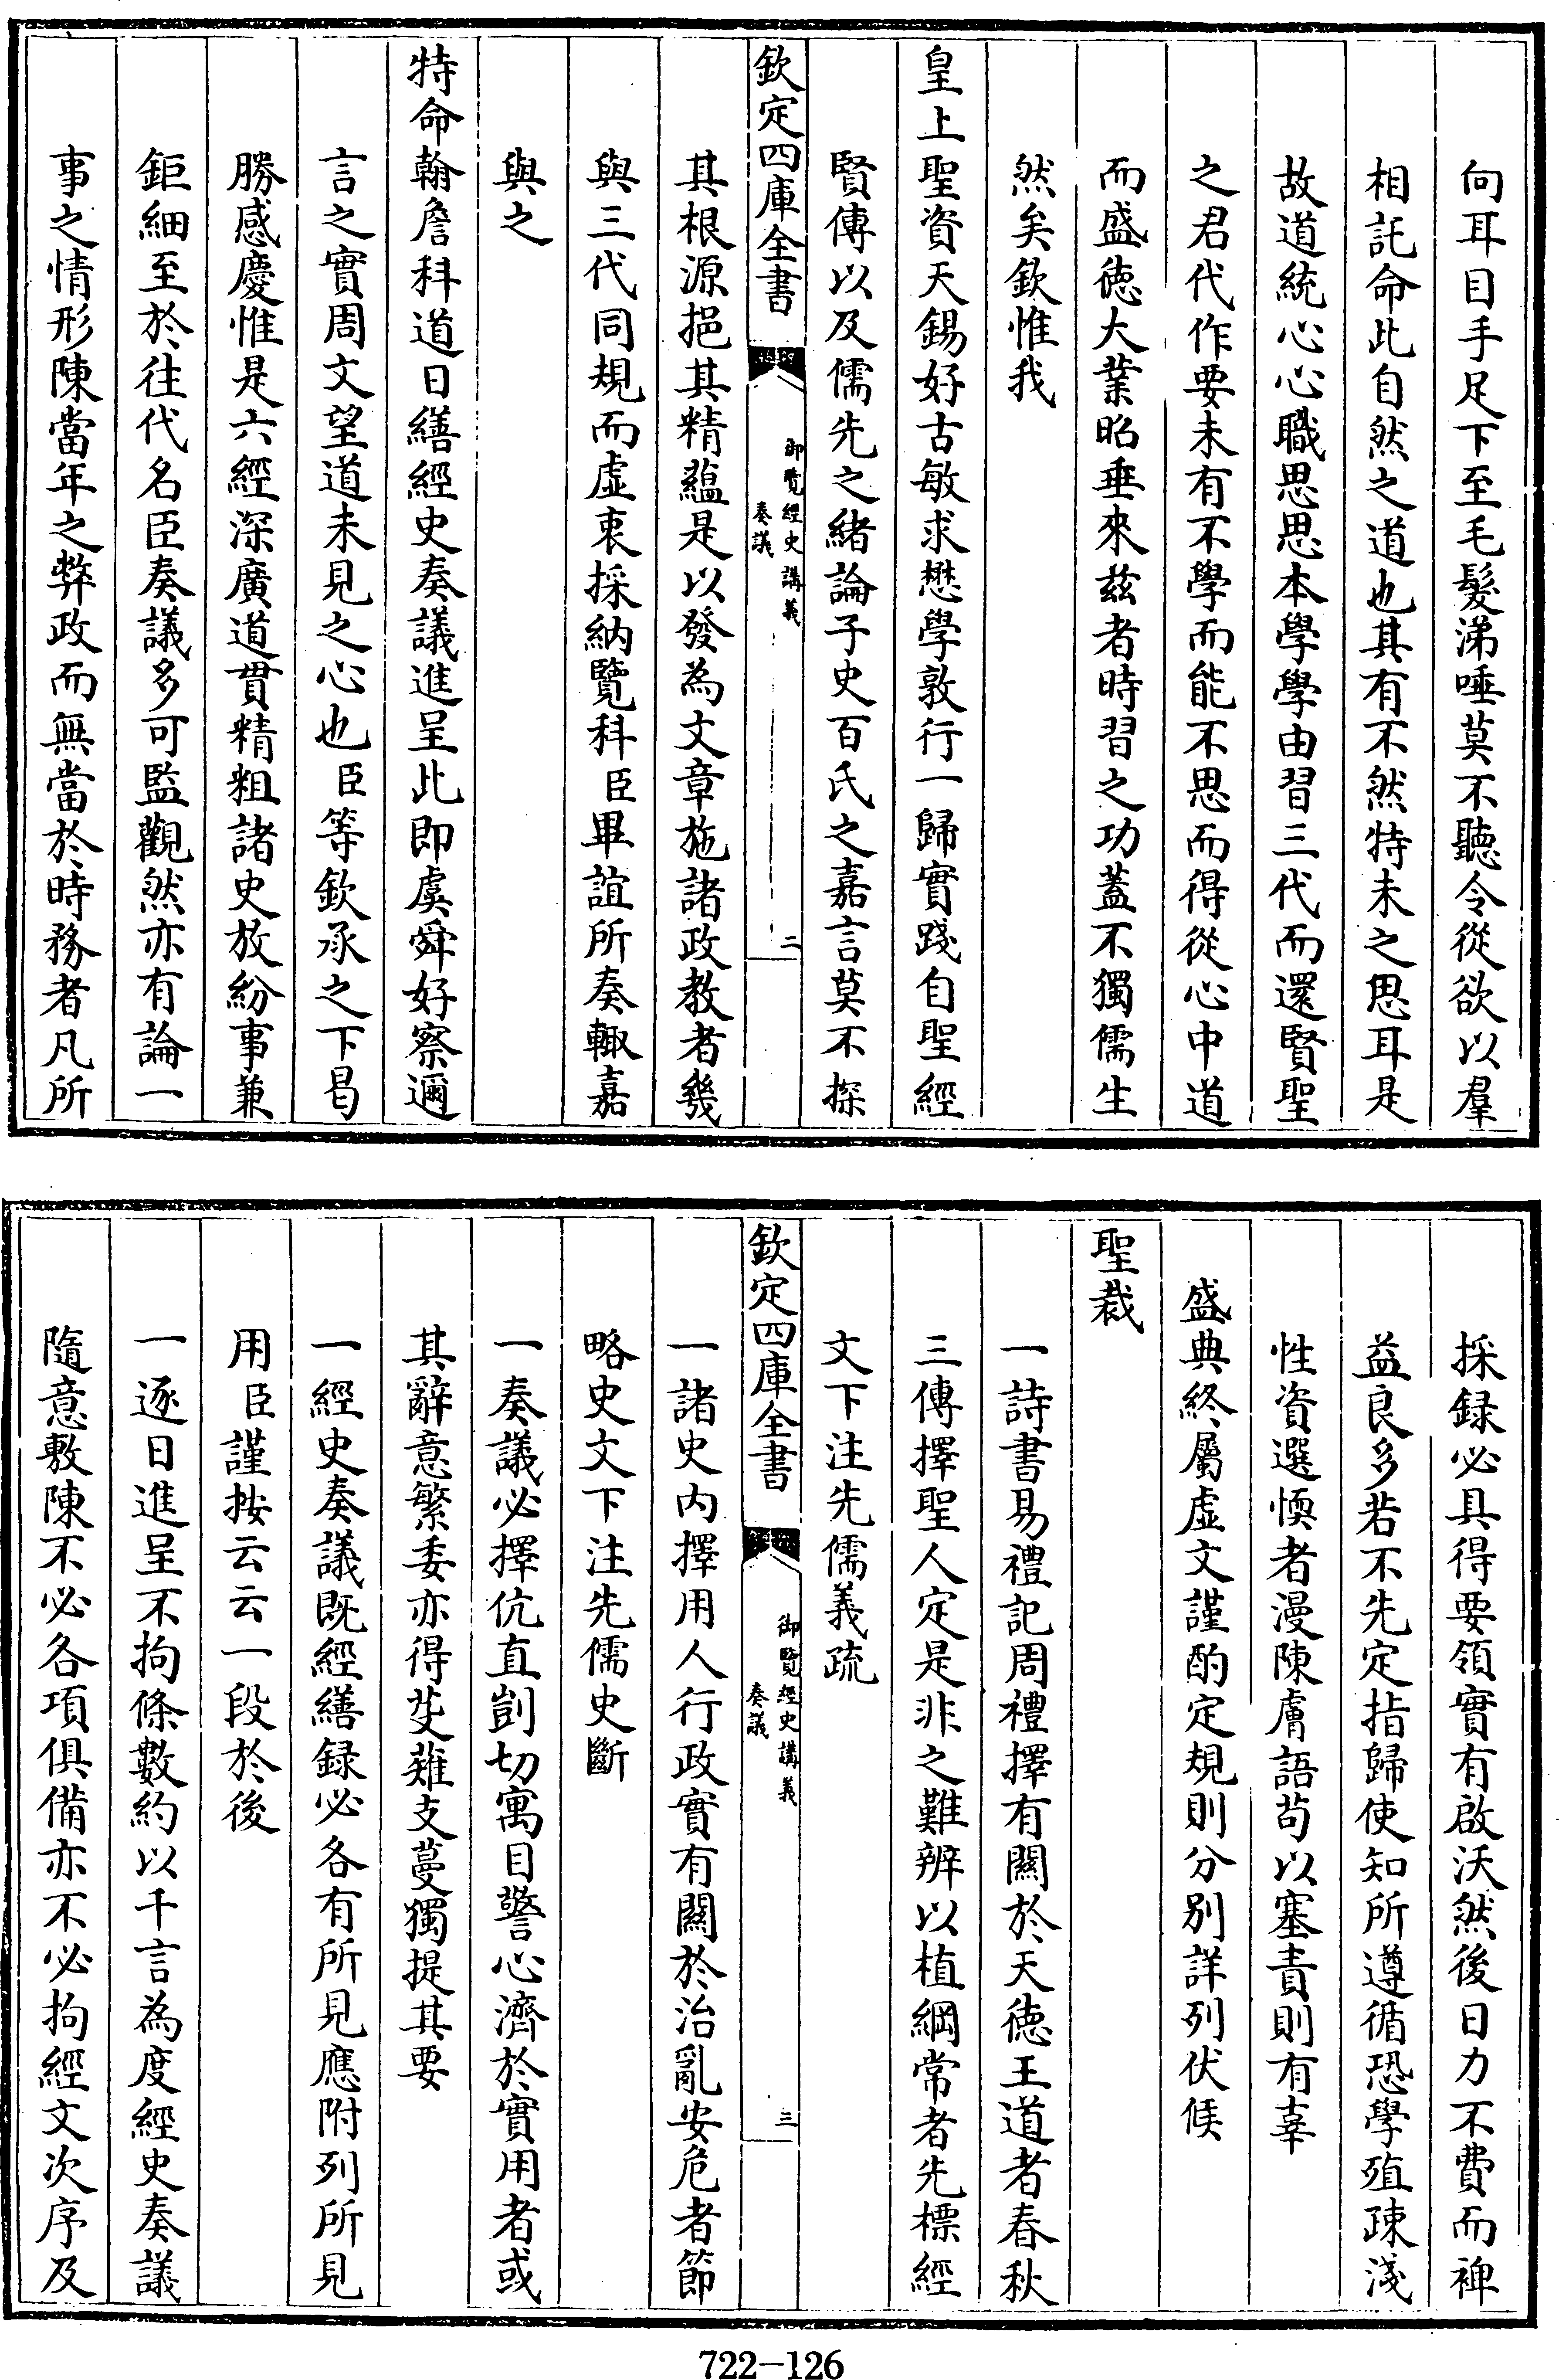 向耳目手足下至毛髮涕唾莫不聽令從欲以羣
相託命此自然之道也其有不然特未之思耳是
故道統心心職思思本學學由習三代而還賢聖
之君代作要未有不學而能不思而得從心中道
而盛徳大業昭垂來兹者時習之功蓋不獨儒生
然矣欽惟我
皇上聖資天錫好古敏求懋學敦行一歸實踐自聖經
賢傳以及儒先之緒論子史百氏之嘉言莫不探
欽定四庫全書
御覽經史講義
奏議
二
其根源挹其精藴是以發為文章施諸政教者幾
與三代同規而虚衷採納覽科臣畢誼所奏輙嘉
與之
特命翰詹科道日繕經史奏議進呈此即虞舜好察邇
言之實周文望道未見之心也臣等欽承之下曷
勝感慶惟是六經深廣道貫精粗諸史放紛事兼
鉅細至於往代名臣奏議多可監觀然亦有論一
事之情形陳當年之弊政而無當於時務者凡所
採録必具得要領實有啟沃然後日力不費而裨
益良多若不先定指歸使知所遵循恐學殖疎淺
性資選愞者漫陳膚語苟以塞責則有辜
盛典終屬虚文謹酌定規則分别詳列伏候
聖裁
一詩書易禮記周禮擇有闗於天徳王道者春秋
三傳擇聖人定是非之難辨以植綱常者先標經
文下注先儒義疏
欽定四庫全書
御覽經史講義
奏議
三
一諸史内擇用人行政實有闗於治亂安危者節
略史文下注先儒史斷
一奏議必擇伉直剴切寓目警心濟於實用者或
其辭意繁委亦得芟薙支蔓獨提其要
一經史奏議既經繕録必各有所見應附列所見
用臣謹按云云一段於後
一逐日進呈不拘條數約以千言為度經史奏議
隨意敷陳不必各項俱備亦不必拘經文次序及
722-126